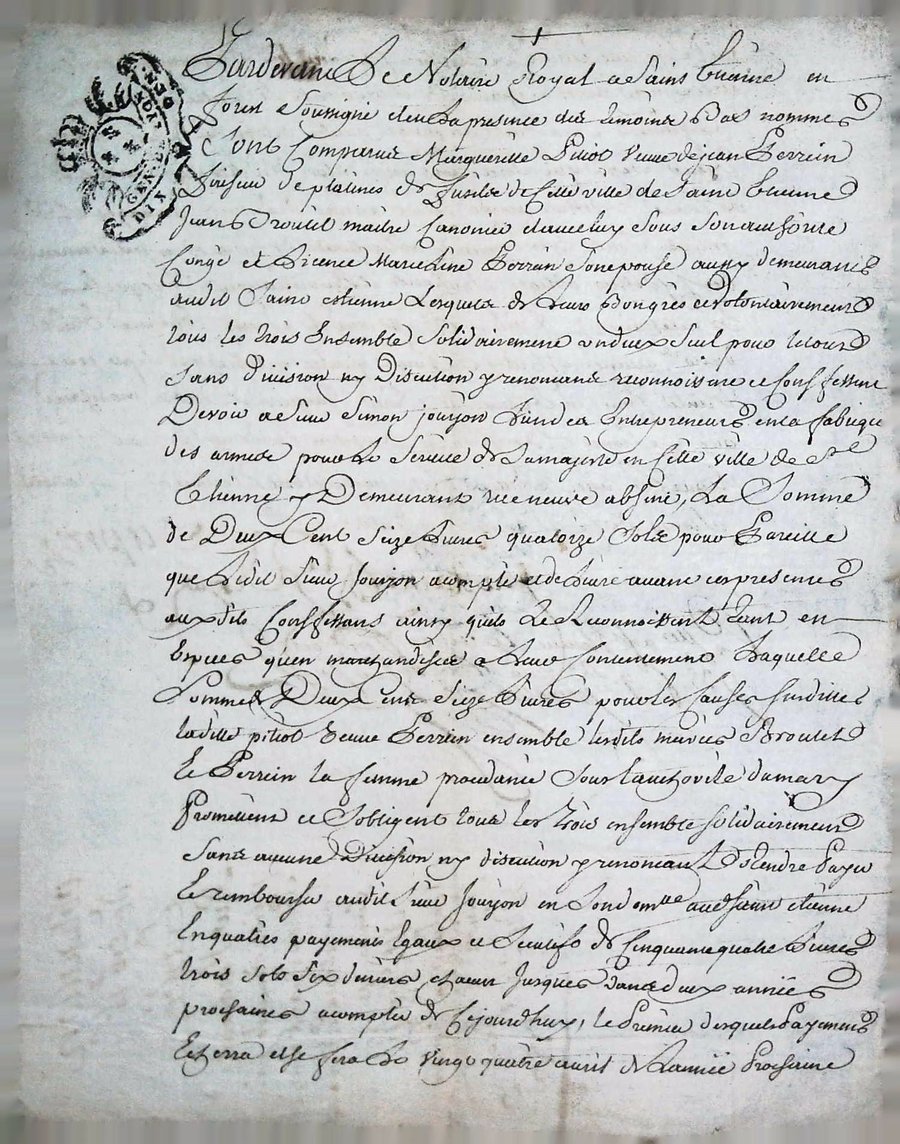 GEN. DE LYON
DIX
Pardevant Le Notaire Royal a Saint Etienne en
forest Soussigné et en La presence des temoins Bas nommes
Sont Comparus Marguerite Pitiot veuve de jean Perrein
de platines de fusils de Cette ville de Saint Etienne
Jean Broütet maitre Canonier et avec luy Sous Son authorité
Congé et Licence Marceline Perrein Son epouse aussy demeurants
audit Saint etienne Lesquels de Leurs Bongrés et volontairement
tous les trois Ensemble Solidairement un deux Seul pour le tout
Sans division ny Discution y renoncant reconnoissent et Conffessent
Devoir a Sieur Simon jourjon Lun des Entrepreneurs en la fabrique
des armes pour Le Service de Sa majesté en Cette ville de St
Etienne y Demeurant rue neuve absent, La Somme
de Deux Cent Seize Livres quatorze Sols pour Pareille
que Ledit Sieur Jourjon a compté et delivré avant ces presentes
aux dits Conffessans ainsy quils Le Reconnoissent tant en
Especes qu'en marchandises a Leur Contentement Laquelle
Somme de Deux Cent Seize Livres pour les Causes susdittes
la ditte pitiot veuve Perrein ensemble lesdits mariés Broutet
et Perrein la femme procedante Sous l'authorité du mary
Promettent et Sobligent tous les trois ensemble solidairement
Sans aucune Division ny discution y renoncant de Rendre Payer
et rembourser audit Sieur Jourjon en Son domlle audit saint etienne
En quatres payements Egaux et de Cinquante quatre Livres
trois sols Six deniers chacun jusques Dans deux années
prochaines a compter de Cejourdhuy, le Premier desquels Payements
Echerra et se fera Le vingt quatre avril de Lannée Prochaine